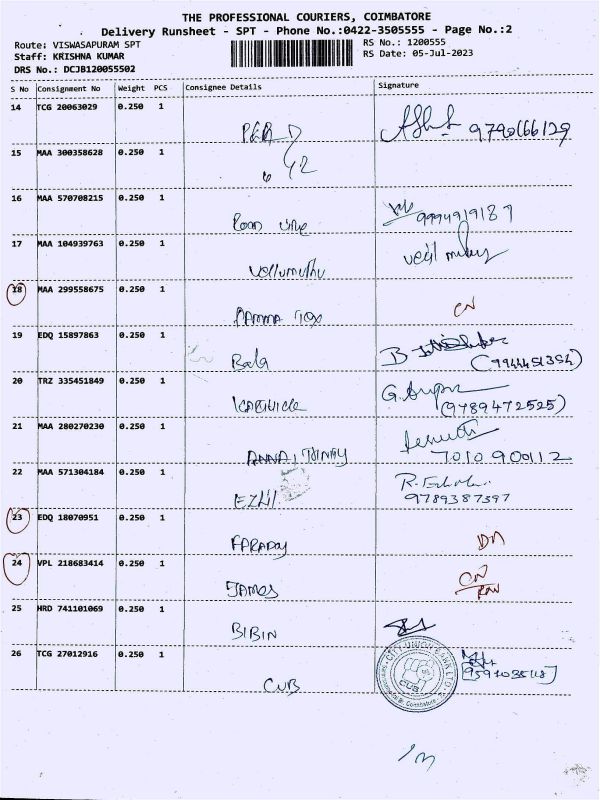 THE PROFESSIONAL COURIERS, COIMBATORE
Delivery Runsheet - SPT - Phone No.:0422-3505555 - Page No.:2
Route: VISWASAPURAM SPT
Staff: KRISHNA KUMAR
DRS No.: DCJB120055502
RS No.: 1200555
RS Date: 05-Jul-2023
S No Consignment No Weight PCS Consignee Details Signature
14 TCG 20063029 0.250 1
9790166129
15 MAA 300358628 0.250 1
16 MAA 570708215 0.250 1
9994919187
17 MAA 104939763 0.250 1
Vellumuthu
18 MAA 299558675 0.250 1
CN
19 EDQ 15897863 0.250 1
Bala B
20 TRZ 335451849 0.250 1
(9789472525)
21 MAA 280270230 0.250 1
7010900112
22 MAA 571304184 0.250 1
EZHIL
9789387397
23 EDQ 18070951 0.250 1
FARADAY DN
24 VPL 218683414 0.250 1
JAMES CN
25 HRD 741101069 0.250 1
BIBIN
26 TCG 27012916 0.250 1
CUB
CITY UNION BANK LTD.
CUB